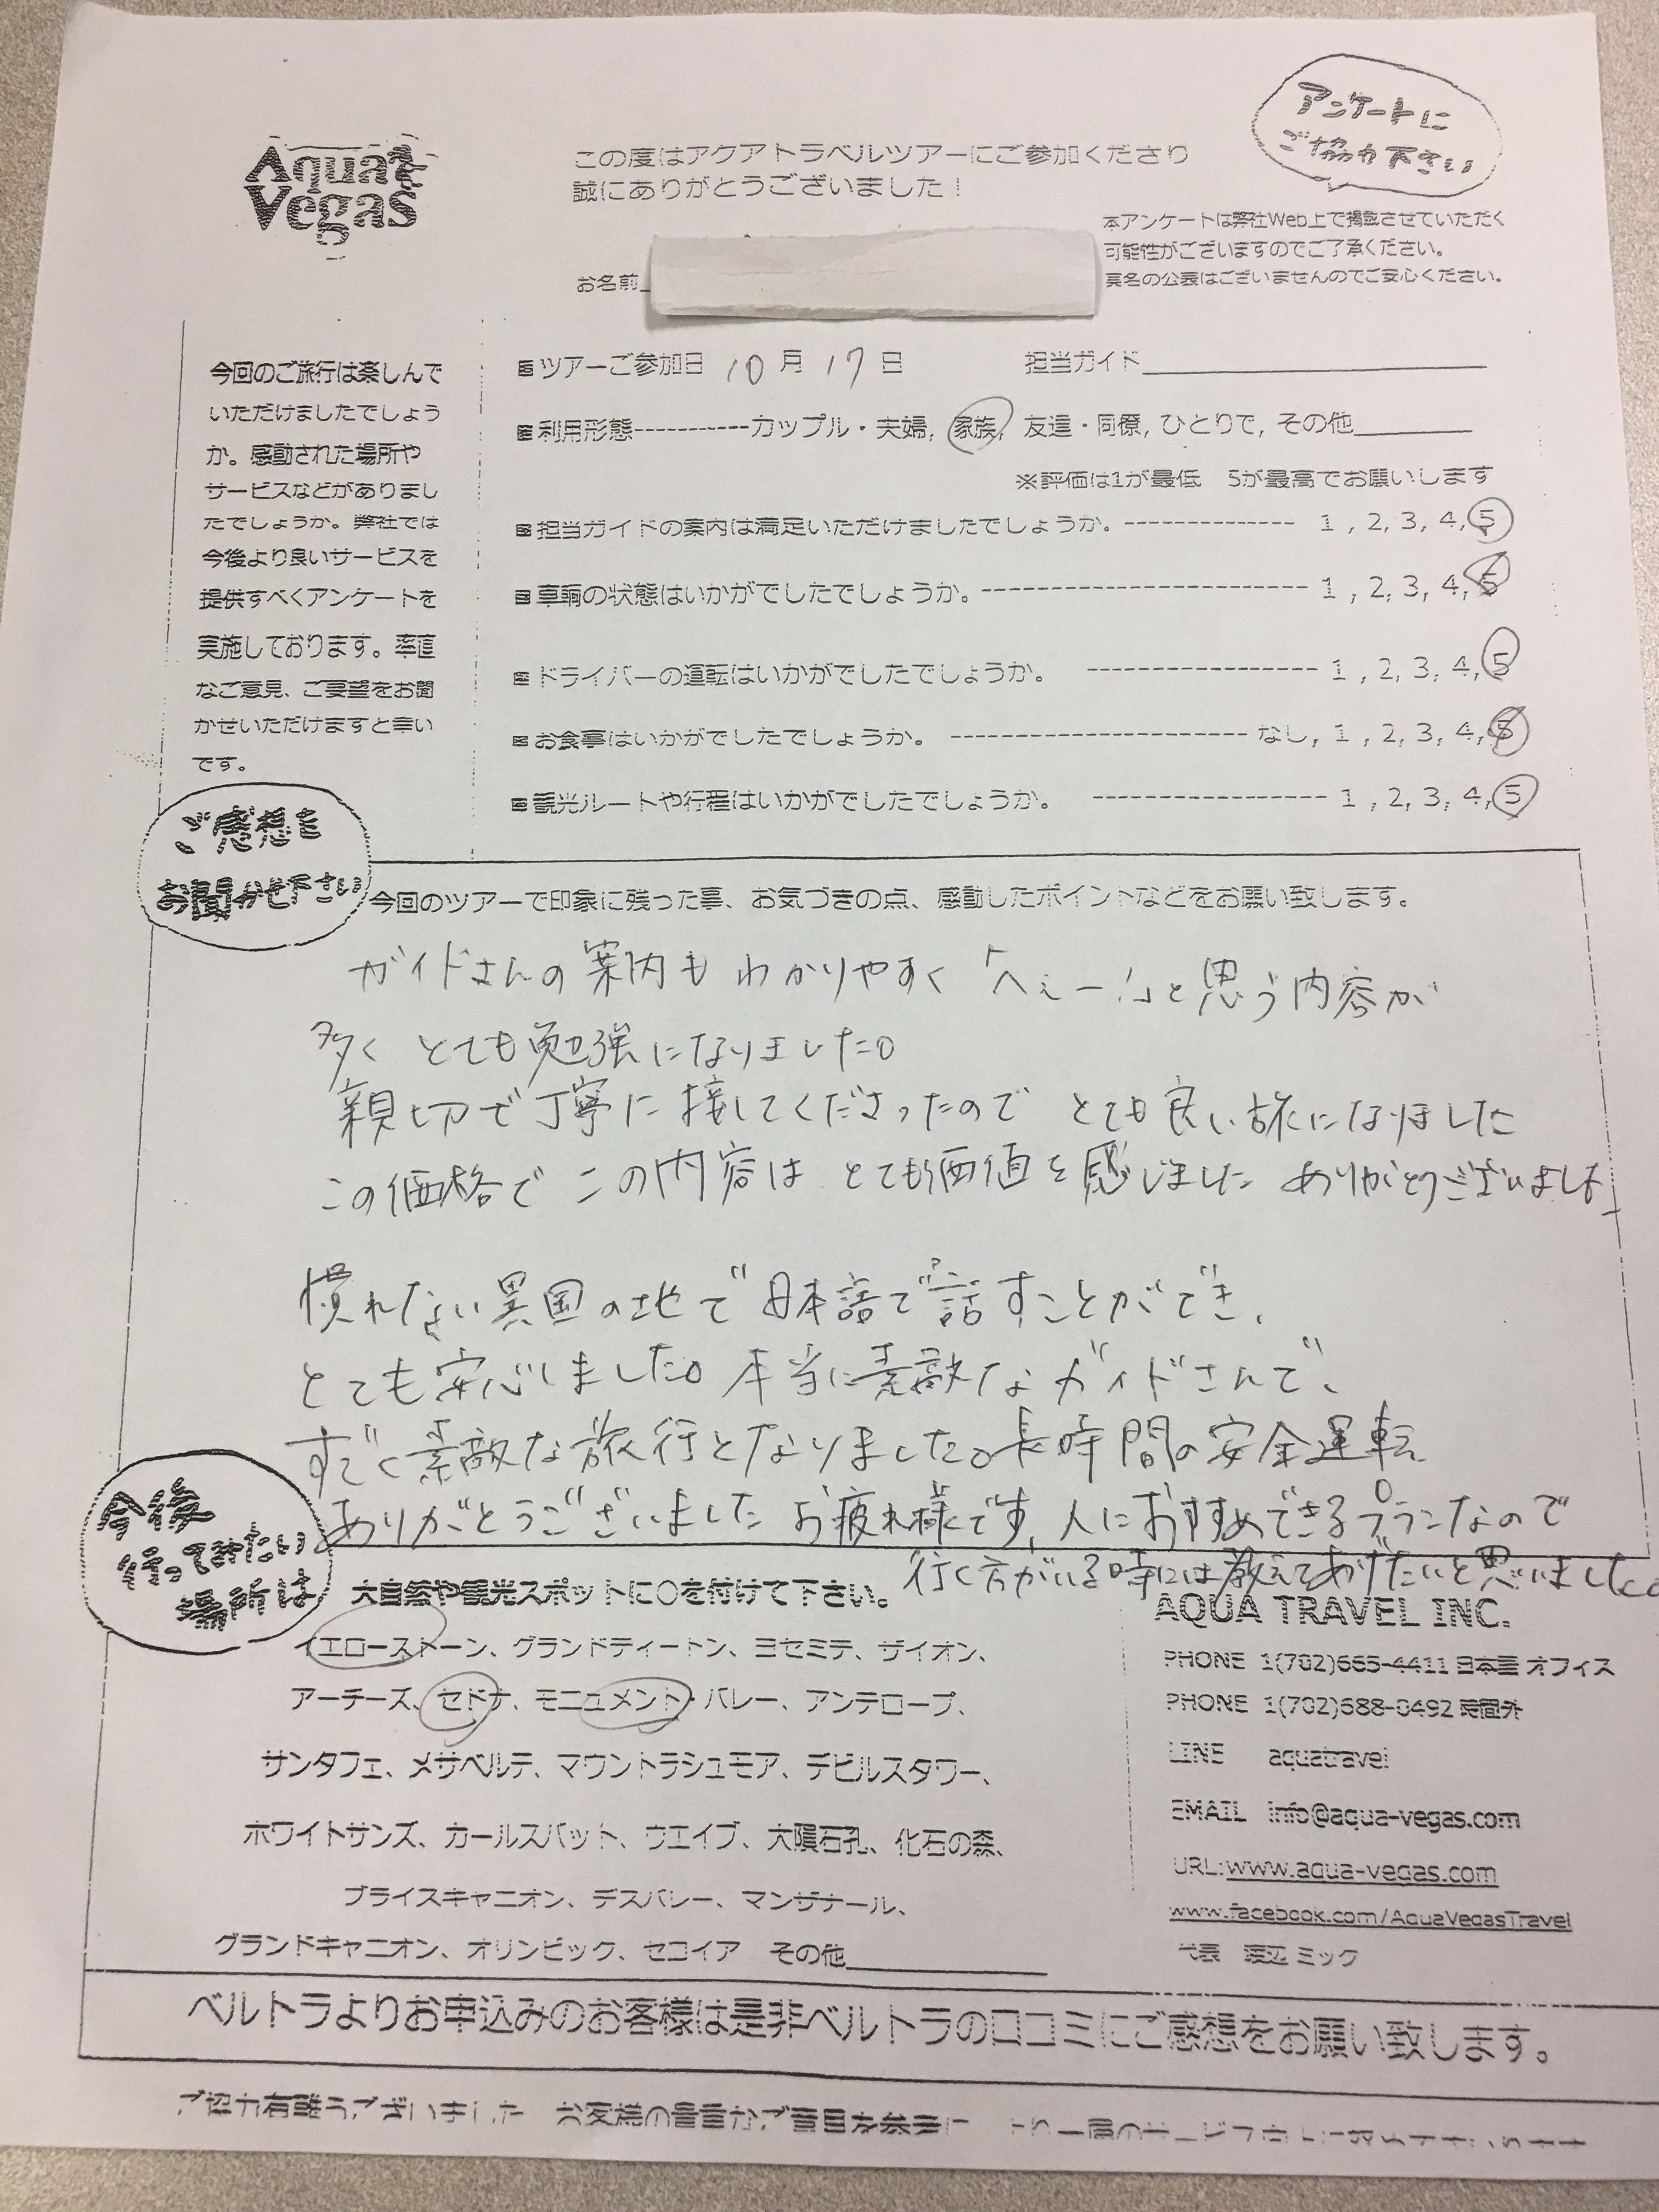 アンケートに
ご協力下さい
Aqua
Vegas
この度はアクアトラベルツアーにご参加くださり
誠にありがとうございました！
本アンケートは弊社Web上で掲載させていただく
可能性がございますのでご了承ください。
実名の公表はございませんのでご安心ください。
お名前
今回のご旅行は楽しんで
いただけましたでしょう
か。感動された場所や
サービスなどがありまし
たでしょうか。弊社では
今後より良いサービスを
提供すべくアンケートを
実施しております。率直
なご意見、ご要望をお聞
かせいただけますと幸い
です。
ツアーご参加日 10 月 17 日 担当ガイド
利用形態-----------カップル・夫婦, 家族, 友達・同僚, ひとりで, その他
※評価は1が最低 5が最高でお願いします
担当ガイドの案内は満足いただけましたでしょうか。-------------- 1 , 2, 3, 4, 5
車輌の状態はいかがでしたでしょうか。--------------------------- 1 , 2, 3, 4, 5
ドライバーの運転はいかがでしたでしょうか。 ------------------- 1 , 2, 3, 4, 5
お食事はいかがでしたでしょうか。 ----------------------- なし, 1 , 2, 3, 4, 5
観光ルートや行程はいかがでしたでしょうか。 ------------------- 1 , 2, 3, 4, 5
ご感想を
お聞かせ下さい
今回のツアーで印象に残った事、お気づきの点、感動したポイントなどをお願い致します。
ガイドさんの案内も わかりやすく 「へぇー!」と思う内容が
多く とても勉強になりました。
親切で丁寧に接してくださったので とても良い旅になりました
この価格で この内容は とても価値を感じました ありがとうございました
慣れない異国の地で日本語で話すことができ、
とても安心しました。本当に素敵なガイドさんで、
すごく素敵な旅行となりました。長時間の安全運転
ありがとうございました お疲れ様です、人におすすめできるプランなので
行く方がいる時には教えてあげたいと思いました。
今後
行ってみたい
場所は
大自然や観光スポットに○を付けて下さい。
イエローストーン、グランドティートン、ヨセミテ、ザイオン、
アーチーズ、セドナ、モニュメント・バレー、アンテロープ、
サンタフェ、メサベルデ、マウントラシュモア、デビルスタワー、
ホワイトサンズ、カールスバット、ウエイブ、大隕石孔、化石の森、
ブライスキャニオン、デスバレー、マンザナール、
グランドキャニオン、オリンピック、セコイア その他
AQUA TRAVEL INC.
PHONE 1(702)665-4411 日本語 オフィス
PHONE 1(702)688-0492 時間外
LINE aquatravel
EMAIL info@aqua-vegas.com
URL:www.aqua-vegas.com
www.facebook.com/AquaVegasTravel
代表 渡辺 ミック
ベルトラよりお申込みのお客様は是非ベルトラの口コミにご感想をお願い致します。
ご協力有難うございました お客様の貴重なご意見を参考に